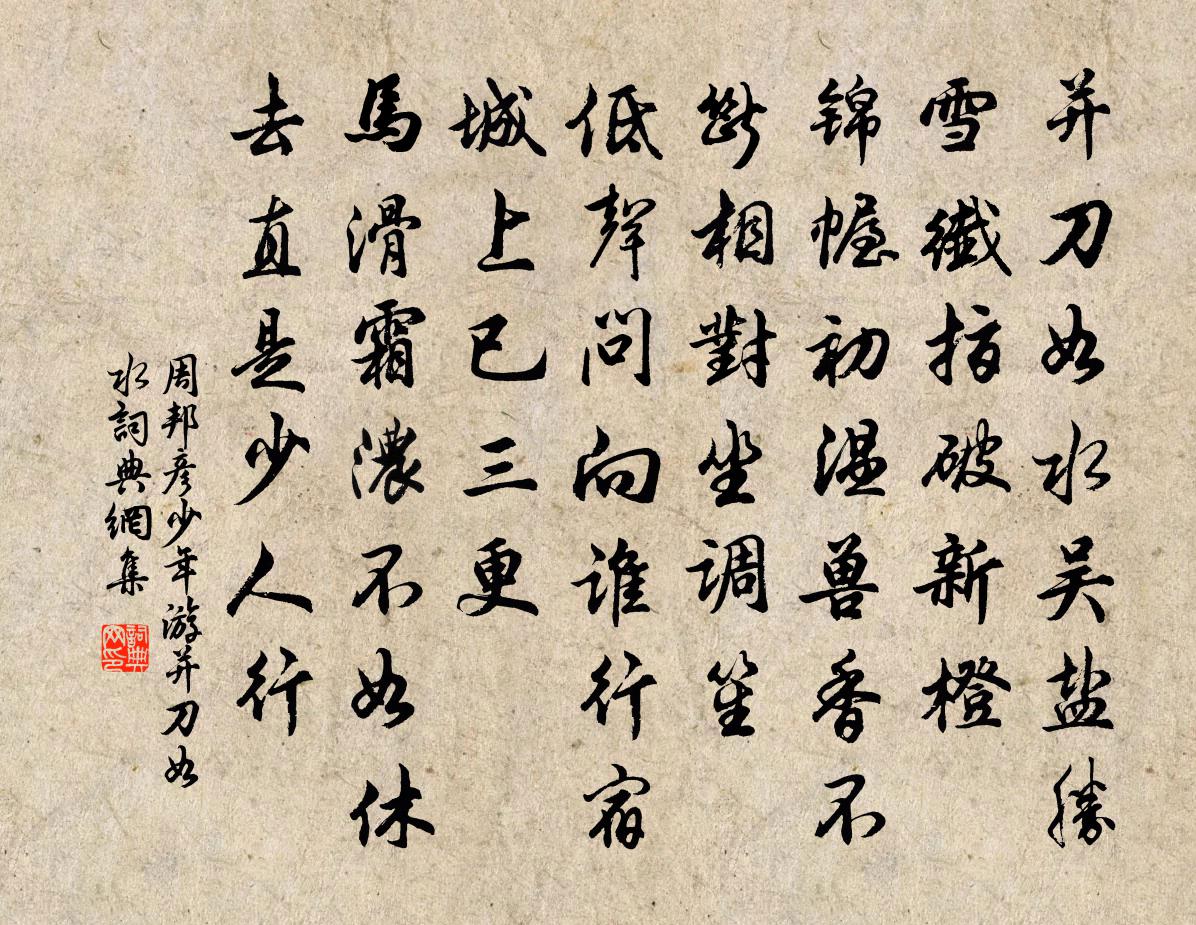 并刀如水吴盐勝
雪纖指破新橙
錦幄初温兽香不
斷相對坐调笙
低聲問向谁行宿
城上已三更
馬滑霜濃不如休
去直是少人行
周邦彦少年游并刀如
水詞典網集
詞典
网印